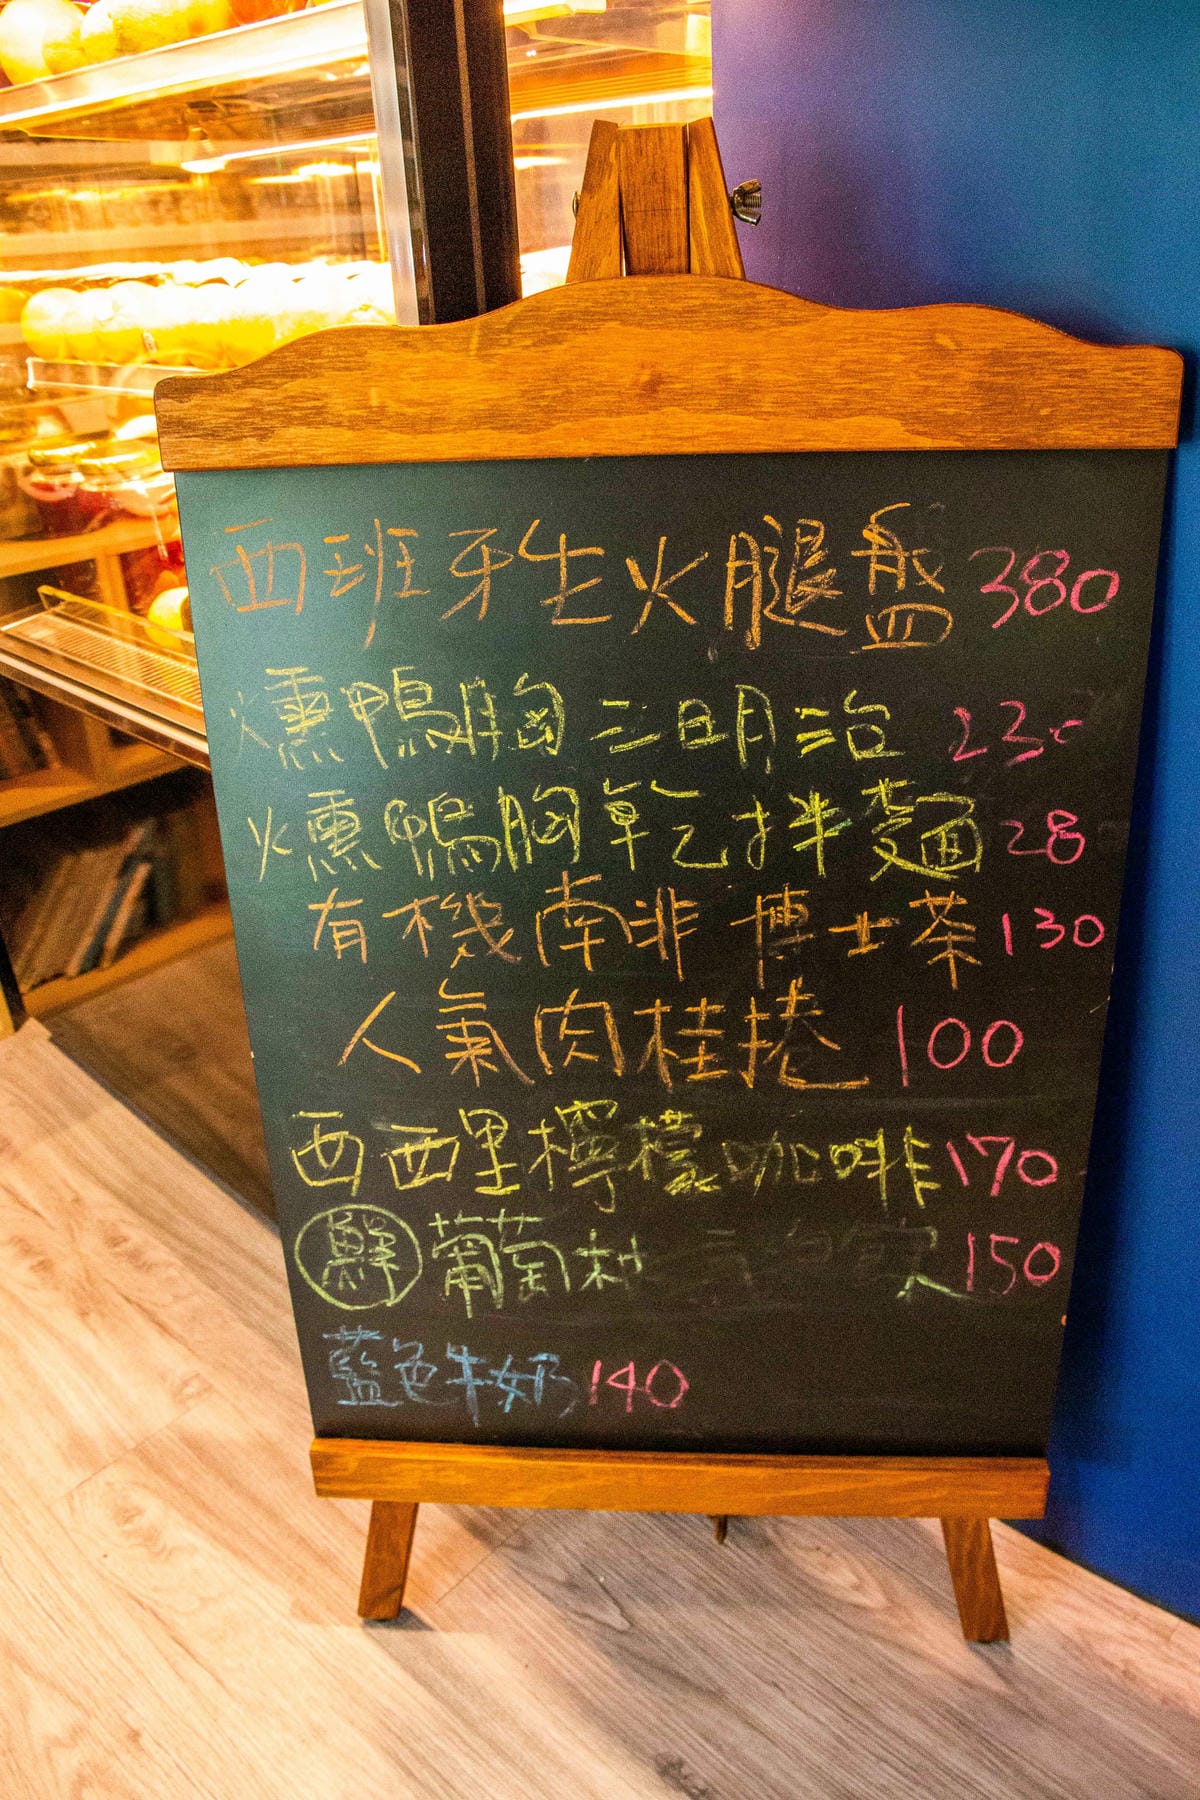 西班牙生火腿盤 380
燻鴨胸三明治 230
燻鴨胸乾拌麵 28
有機南非博士茶 130
人氣肉桂捲 100
西西里檸檬咖啡 170
鮮葡萄柚氣泡飲 150
藍色牛奶 140